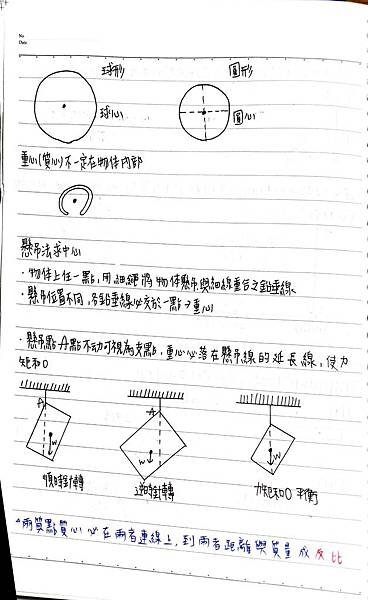 No
Date
球形 圓形
球心 圓心
重心(質心)不一定在物体內部
懸吊法求中心
·物体上任一點,用細繩將物体懸吊與細線重合之鉛垂線
·懸吊位置不同,各鉛垂線必交於一點→重心
·懸吊點A點不動可視為支點,重心必落在懸吊線的延長線,使力
矩和0
A A
W W W
順時針轉 逆時針轉 力矩和0 平衡
兩質點質心必在兩者連線上,到兩者距離與質量成反比